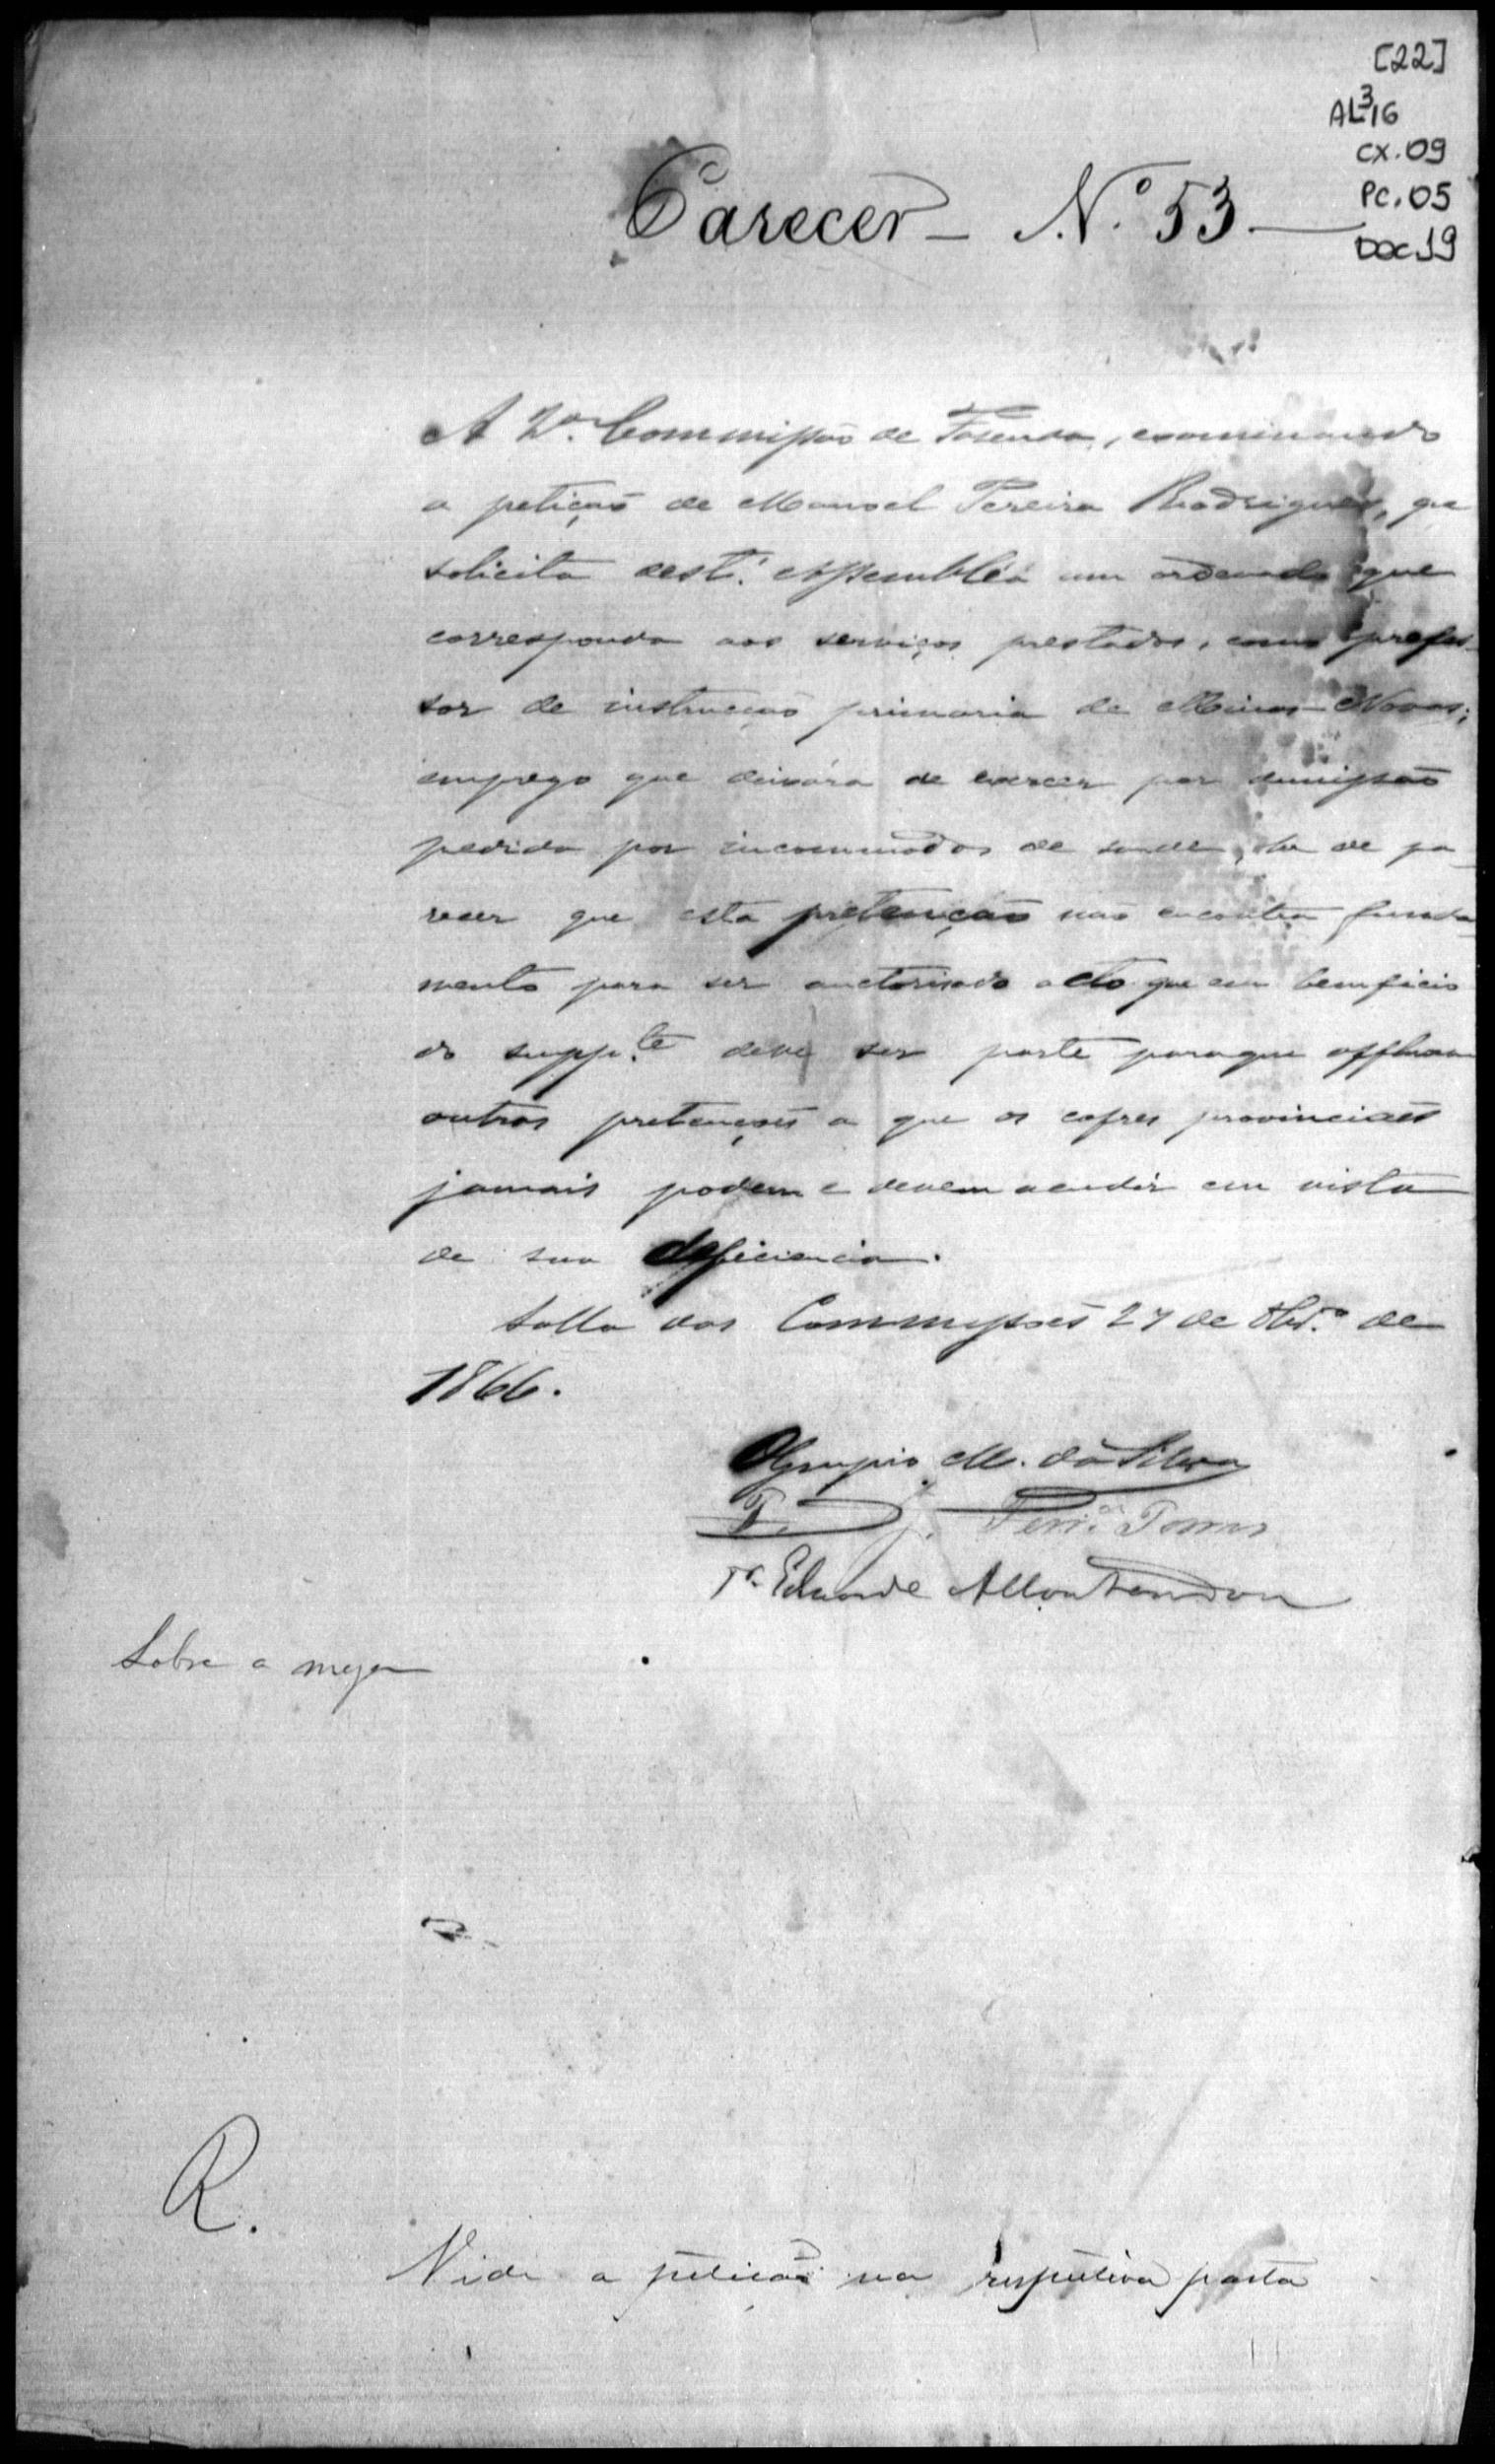 [22]
AL³16
CX.09
PC.05
DOC.19
Parecer – N.º 53 —
A 2ª. Commissão de Fasenda, examinando
a petição de Manoel Pereira Rodrigues, que
solicita dest.ª Assembléa um ordenado que
corresponda aos serviços prestados, como profes-
sor de instrucção primaria de Minas-Novas;
emprego que deixára de exercer por demissão
pedida por incommodos de saude, he de pa-
recer que esta pretenção não encontra funda-
mento para ser auctorisado acto que em beneficio
do supp.te deve ser parte paraque affluam
outras pretenções a que os cofres provinciaes
jamais podem e devem acudir em vista
de sua deficiencia.
Salla das Commissões 27 de de
1866.
Olympio M. da Silva
J. Ferr.ª
Eduardo A Montandon
Sobre a meza
R.
Vide a petição na respectiva pasta